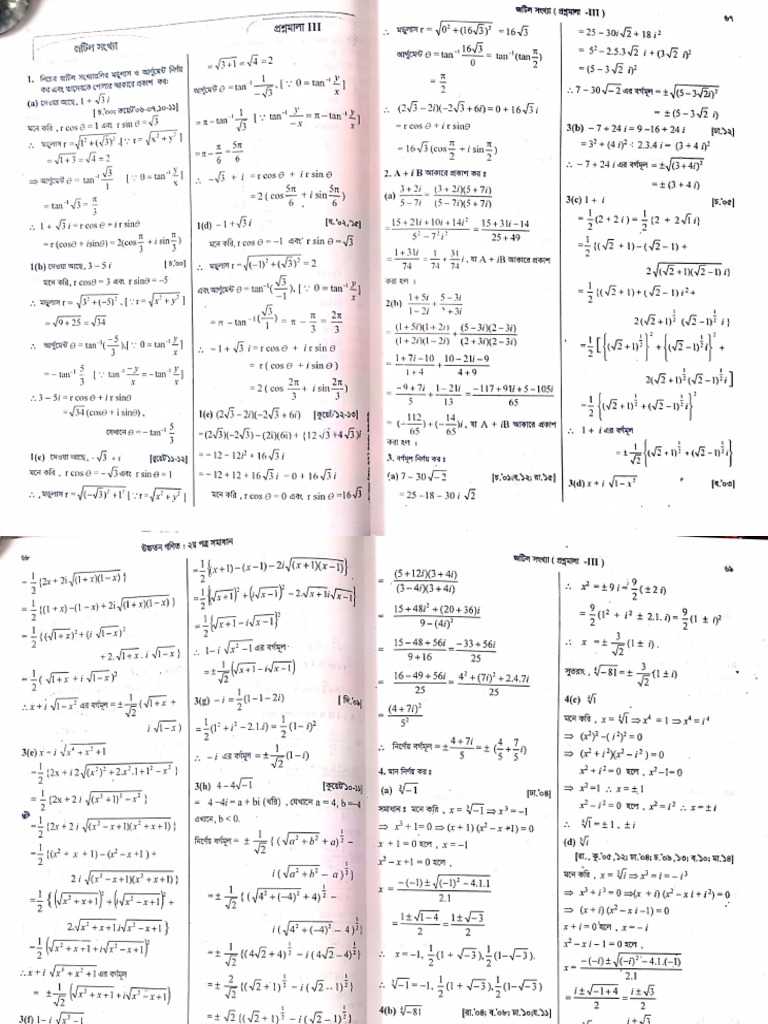 জটিল সংখ্যা
প্রশ্নমালা III
1. নিচের জটিল সংখ্যাগুলির মডুলাস ও আর্গুমেন্ট নির্ণয়
কর এবং তাদেরকে পোলার আকারে প্রকাশ কর:
(a) দেওয়া আছে, 1 + √3 i
মনে করি, r cos θ = 1 এবং r sin θ = √3
∴ মডুলাস r = √(1² + (√3)²) [∵ r = √(x² + y²)]
= √(1+3) = √4 = 2
⇒ আর্গুমেন্ট θ = tan⁻¹ √3/1 [∵ θ = tan⁻¹ y/x]
= tan⁻¹ √3 = π/3
∴ 1 + √3 i = r cos θ + i r sin θ
= r (cos θ + i sin θ) = 2(cos π/3 + i sin π/3)
1(b) দেওয়া আছে, 3 – 5 i [চ.'০০]
মনে করি, r cos θ = 3 এবং r sin θ = –5
∴ মডুলাস r = √(3² + (–5)²), [∵ r = √(x² + y²)]
= √(9 + 25) = √34
∴ আর্গুমেন্ট θ = tan⁻¹(–5/3), [∵ θ = tan⁻¹ y/x]
= – tan⁻¹ 5/3 [∵ tan⁻¹ –y/x = – tan⁻¹ y/x]
∴ 3 – 5i = r cos θ + i r sin θ
= √34 (cos θ + i sin θ),
যেখানে θ = – tan⁻¹ 5/3
1(c) দেওয়া আছে, –√3 + i [কুয়েট'১১-১২]
মনে করি, r cos θ = –√3 এবং r sin θ = 1
∴ মডুলাস r = √((–√3)² + 1²) [∵ r = √(x² + y²)]
= √(3+1) = √4 = 2
আর্গুমেন্ট θ = tan⁻¹ 1/–√3, [∵ θ = tan⁻¹ y/x]
= π – tan⁻¹ 1/√3 [∵ tan⁻¹ y/–x = π – tan⁻¹ y/x]
= π – π/6 = 5π/6
∴ –√3 + i = r cos θ + i r sin θ
= 2 ( cos 5π/6 + i sin 5π/6 )
1(d) –1 + √3 i [ব.'০২,'১৫]
মনে করি, r cos θ = –1 এবং r sin θ = √3
∴ মডুলাস r = √((–1)² + (√3)²) = 2
এবং আর্গুমেন্ট θ = tan⁻¹(√3/–1), [∵ θ = tan⁻¹ y/x]
= π – tan⁻¹(√3/1) = π – π/3 = 2π/3
∴ –1 + √3 i = r cos θ + i r sin θ
= r ( cos θ + i sin θ)
= 2 ( cos 2π/3 + i sin 2π/3 )
1(e) (2√3 – 2i)(–2√3 + 6i) [কুয়েট'১২-১৩]
= (2√3)(–2√3) – (2i)(6i) + {12√3 + 4√3)i
= –12 – 12i² + 16√3 i
= –12 + 12 + 16√3 i = 0 + 16√3 i
মনে করি, r cos θ = 0 এবং r sin θ = 16√3
জটিল সংখ্যা ( প্রশ্নমালা -III )
৬৭
∴ মডুলাস r = √(0² + (16√3)²) = 16√3
আর্গুমেন্ট θ = tan⁻¹ 16√3/0 = tan⁻¹(tan π/2)
= π/2
∴ (2√3 – 2i)(–2√3 + 6i) = 0 + 16√3 i
= r cos θ + i r sin θ
= 16√3 (cos π/2 + i sin π/2)
2. A + i B আকারে প্রকাশ কর :
(a) (3+2i)/(5–7i) = (3+2i)(5+7i)/(5–7i)(5+7i)
= (15+21i+10i+14i²)/(5² – 7²i²) = (15+31i–14)/(25+49)
= (1+31i)/74 = 1/74 + 31/74 i, যা A + iB আকারে প্রকাশ
করা হল ।
2(b) (1+5i)/(1–2i) + (5–3i)/(2+3i)
= (1+5i)(1+2i)/(1+2i)(1–2i) + (5–3i)(2–3i)/(2+3i)(2–3i)
= (1+7i–10)/(1+4) + (10–21i–9)/(4+9)
= (–9+7i)/5 + (1–21i)/13 = (–117+91i+5–105i)/65
= (–112/65) + (–14/65)i, যা A + iB আকারে প্রকাশ
করা হল ।
3. বর্গমূল নির্ণয় কর :
(a) 7 – 30√–2 [চ.'০১;ব.'১২; রা.'১৫]
= 25 – 18 – 30 i √2
= 25 – 30i √2 + 18 i²
= 5² – 2.5.3√2 i + (3√2 i)²
= (5 – 3√2 i)²
∴ 7 – 30√–2 এর বর্গমূল = ±√(5 – 3√2i)²
= ± (5 – 3√2 i)
3(b) – 7 + 24 i = 9 – 16 + 24 i [ঢা.'১২]
= 3² + (4 i)² + 2.3.4 i = (3 + 4 i)²
∴ – 7 + 24 i এর বর্গমূল = ±√(3 + 4i)²
= ± (3 + 4i)
3(c) 1 + i [চ.'০৫]
= 1/2 (2 + 2 i) = 1/2 {2 + 2√1 i}
= 1/2 {(√2 + 1) – (√2 – 1) +
2√(√2+1)(√2–1) i}
= 1/2 {(√2 + 1) + (√2 – 1) i² +
2(√2 + 1)^½ (√2 – 1)^½ i}
= 1/2 [{(√2 + 1)^½}² + {(√2 – 1)^½ i}² +
2(√2 + 1)^½ (√2 – 1)^½ i]
= 1/2 {(√2 + 1)^½ + (√2 – 1)^½ i}²
∴ 1 + i এর বর্গমূল
= ± 1/√2 {(√2 + 1)^½ + (√2 – 1)^½ i}
3(d) x + i √(1 – x²) [ব.'০৩]
৬৮
উচ্চতর গণিত : ২য় পত্র সমাধান
= 1/2 {2x + 2i √(1+x)(1–x)}
= 1/2 {(1+x) – (1–x) + 2i√(1+x)(1–x)}
= 1/2 {(√1+x)² + (i √1–x)²
+ 2.√1+x. i √1–x}
= 1/2 (√1+x + i √1–x)²
∴ x + i √(1–x²) এর বর্গমূল = ± 1/√2 (√1+x +
i √1–x)
3(e) x = i √(x⁴ + x² + 1)
= 1/2 {2x + i 2√((x²)² + 2.x².1 + 1² – x²)}
= 1/2 {2x + 2 i √((x²+1)² – x²)}
= 1/2 {2x + 2 i √(x² – x+1)(x² + x+1)}
= 1/2 {(x² + x + 1) – (x² – x+1) +
2 i √(x² – x+1)(x² + x+1)}
= 1/2 {(√(x² + x+1))² + (i√(x² – x+1))² +
2.√(x² + x+1).i√(x² – x+1)}
= 1/2 (√(x² + x+1) + i√(x² – x+1))²
∴ x + i √(x⁴ + x² + 1) এর বর্গমূল
= ± 1/√2 (√(x² + x+1) + i√(x² – x+1))
3(f) 1– i √(x² – 1)
= 1/2 {(x+1) – (x–1) – 2i√(x+1)(x–1)}
= 1/2 {(√x+1)² + (i√x–1)² – 2.√x+1.i√x–1}
= 1/2 {√x+1 – i√x–1}²
∴ 1– i√(x² – 1) এর বর্গমূল
= ± 1/√2 (√x+1 – i√x–1)
3(g) – i = 1/2 (1–1–2i) [সি.'০৯]
= 1/2 (1² + i² – 2.1.i) = 1/2 (1– i)²
∴ – i এর বর্গমূল = ± 1/√2 (1– i)
3(h) 4 – 4√–1 [কুয়েট'১০-১১]
= 4 –4i = a + bi (ধরি) , যেখানে a = 4, b = –4
এখানে, b < 0.
নির্ণেয় বর্গমূল = ± 1/√2 {(√(a² + b²) + a)^½ –
i (√(a² + b²) – a)^½}
= ± 1/√2 {(√(4² + (–4)²) + 4)^½ –
i (√(4² + (–4)²) – 4)^½}
= ± 1/√2 {(4√2 + 4)^½ – i (4√2 – 4)^½}
= ± 2/√2 {(√2 + 1)^½ – i (√2 – 1)^½}
= ± √2 {(√2 + 1)^½ – i (√2 – 1)^½}
জটিল সংখ্যা ( প্রশ্নমালা -III )
৬৯
= (5+12i)(3+4i)/(3–4i)(3+4i)
= (15+48i² + (20+36)i)/(9 – (4i)²)
= (15–48+56i)/(9+16) = (–33+56i)/25
= (16–49+56i)/25 = (4² + (7i)² + 2.4.7i)/25
= (4+7i)²/5²
∴ নির্ণেয় বর্গমূল = ± (4+7i)/5 = ± (4/5 + 7/5 i)
4. মান নির্ণয় কর :
(a) ∛–1 [ঢা.'০৪]
সমাধান : মনে করি , x = ∛–1 ⇒ x³ = –1
⇒ x³ + 1 = 0 ⇒ (x + 1) (x² – x + 1) = 0
x + 1 = 0 হলে , x = –1
x² – x + 1 = 0 হলে,
x = (–(–1) ± √((–1)² – 4.1.1))/2.1
= (1 ± √(1–4))/2 = (1 ± √–3)/2
∴ x = –1, 1/2 (1 + √–3), 1/2 (1–√–3).
∴ ∛–1 = –1, 1/2 (1 + √–3), 1/2 (1–√–3)
4(b) ∜–81 [রা.'০৪; ব.'০৮; ঢা.'১০;ব.১১]
∴ x² = ± 9 i = 9/2 (± 2 i)
= 9/2 (1² + i² ± 2.1. i) = 9/2 (1 ± i)²
∴ x = ± 3/√2 (1 ± i) .
সুতরাং , ∜–81 = ± 3/√2 (1 ± i)
4(c) ∜1
মনে করি , x = ∜1 ⇒ x⁴ = 1 ⇒ x⁴ = i⁴
⇒ (x²)² – ( i²)² = 0
⇒ (x² + i²)(x² – i²) = 0
x² + i² = 0 হলে , x² – 1 = 0
⇒ x² = 1 ∴ x = ± 1
x² – i² = 0 হলে , x² = i² ∴ x = ± i
∴ ∜1 = ± 1, ± i
(d) ∛i
[রা., কু.'০৫,'১২; ঢা.'০৪; চ.০৯,'১৩; ব.১০; মা.'১৪]
মনে করি , x = ∛i ⇒ x³ = i = – i³
⇒ x³ + i³ = 0 ⇒ (x + i) (x² – x i + i²) = 0
⇒ (x + i) (x² – x i – 1) = 0
x + i = 0 হলে , x = – i
x² – x i – 1 = 0 হলে ,
x = (–(–i) ± √((–i)² – 4.1.(–1)))/2.1
= (i ± √(–1+4))/2 = (i ± √3)/2